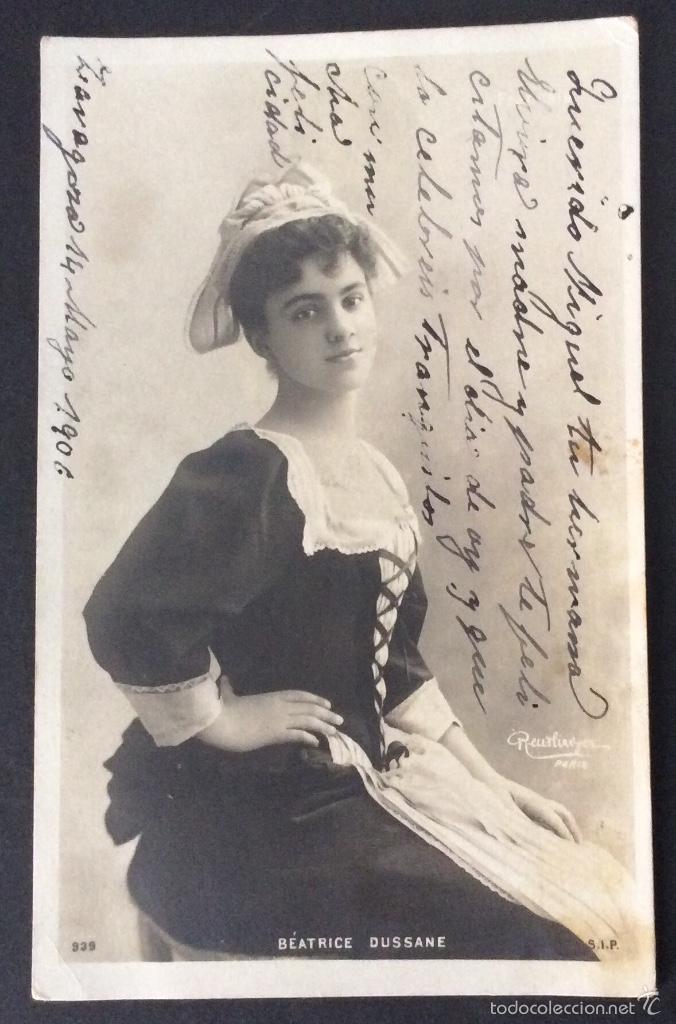 Querido Miguel tu hermana
Elvira madre y padre te feli
citamos por el dia de oy y que
lo celebreis tranquilos
con mu
cha
feli
cidad
Zaragoza 14 Mayo 1906
Reutlinger
PARIS
939
BÉATRICE DUSSANE
S.I.P.
todocoleccion.net